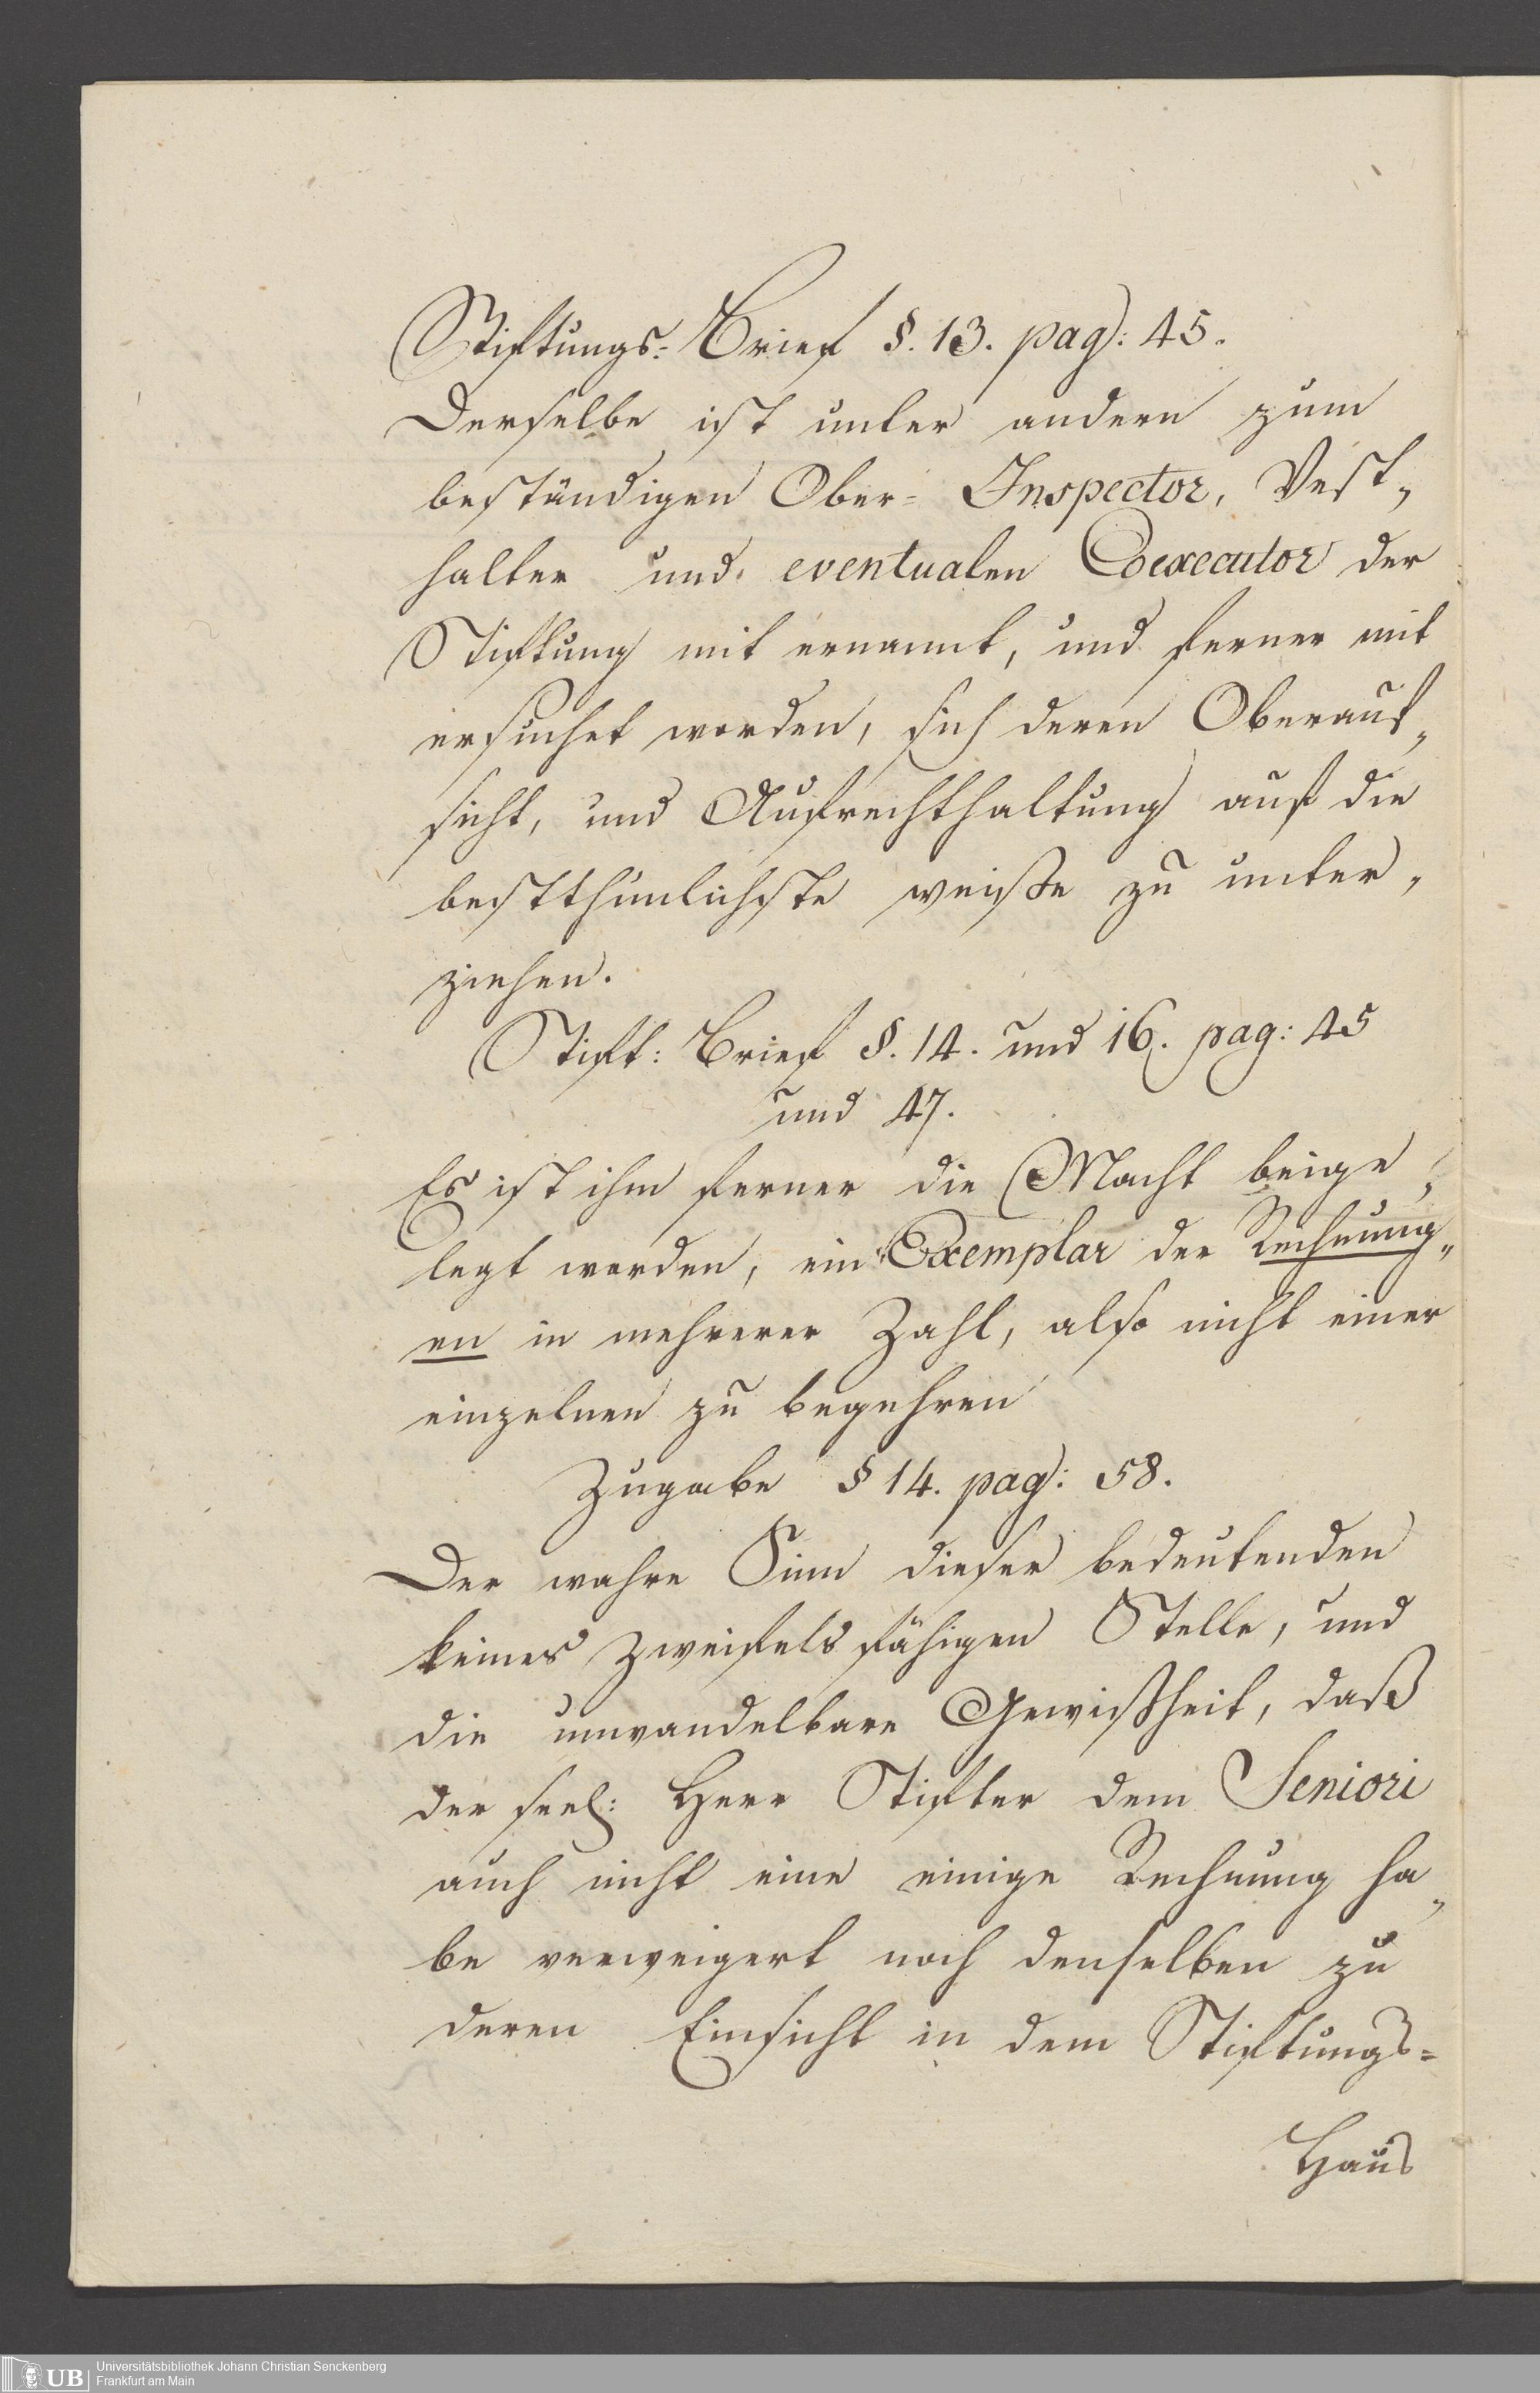 Stiftungs-Brief §. 13. pag: 45.
Derselbe ist unter andern zum
beständigen Ober- Inspector, Vest„
halter und eventualen Coexecutor der
Stiftung mit ernannt, und ferner mit
ersuchet worden, sich deren Oberauf„
sicht, und Aufrechthaltung auf die
bestthunlichste weisse zu unter„
ziehen.
Stift: Brief §. 14. und 16. pag: 45
und 47.
Es ist ihm ferner die Macht beige„
legt worden, ein Exemplar der Rechnung„
en in mehrerer Zahl, also nicht einer
einzelnen zu begehren
Zugabe § 14. pag: 58.
Der wahre Sinn dieser bedeutenden
keines Zweifels fähigen Stelle, und
die unwandelbare Gewißheit, daß
der seel: Herr Stifter dem Seniori
auch nicht eine einige Rechnung ha„
be verweigert noch denselben zu
deren Einsicht in dem Stiftungs=
Haus
UB
Universitätsbibliothek Johann Christian Senckenberg
Frankfurt am Main